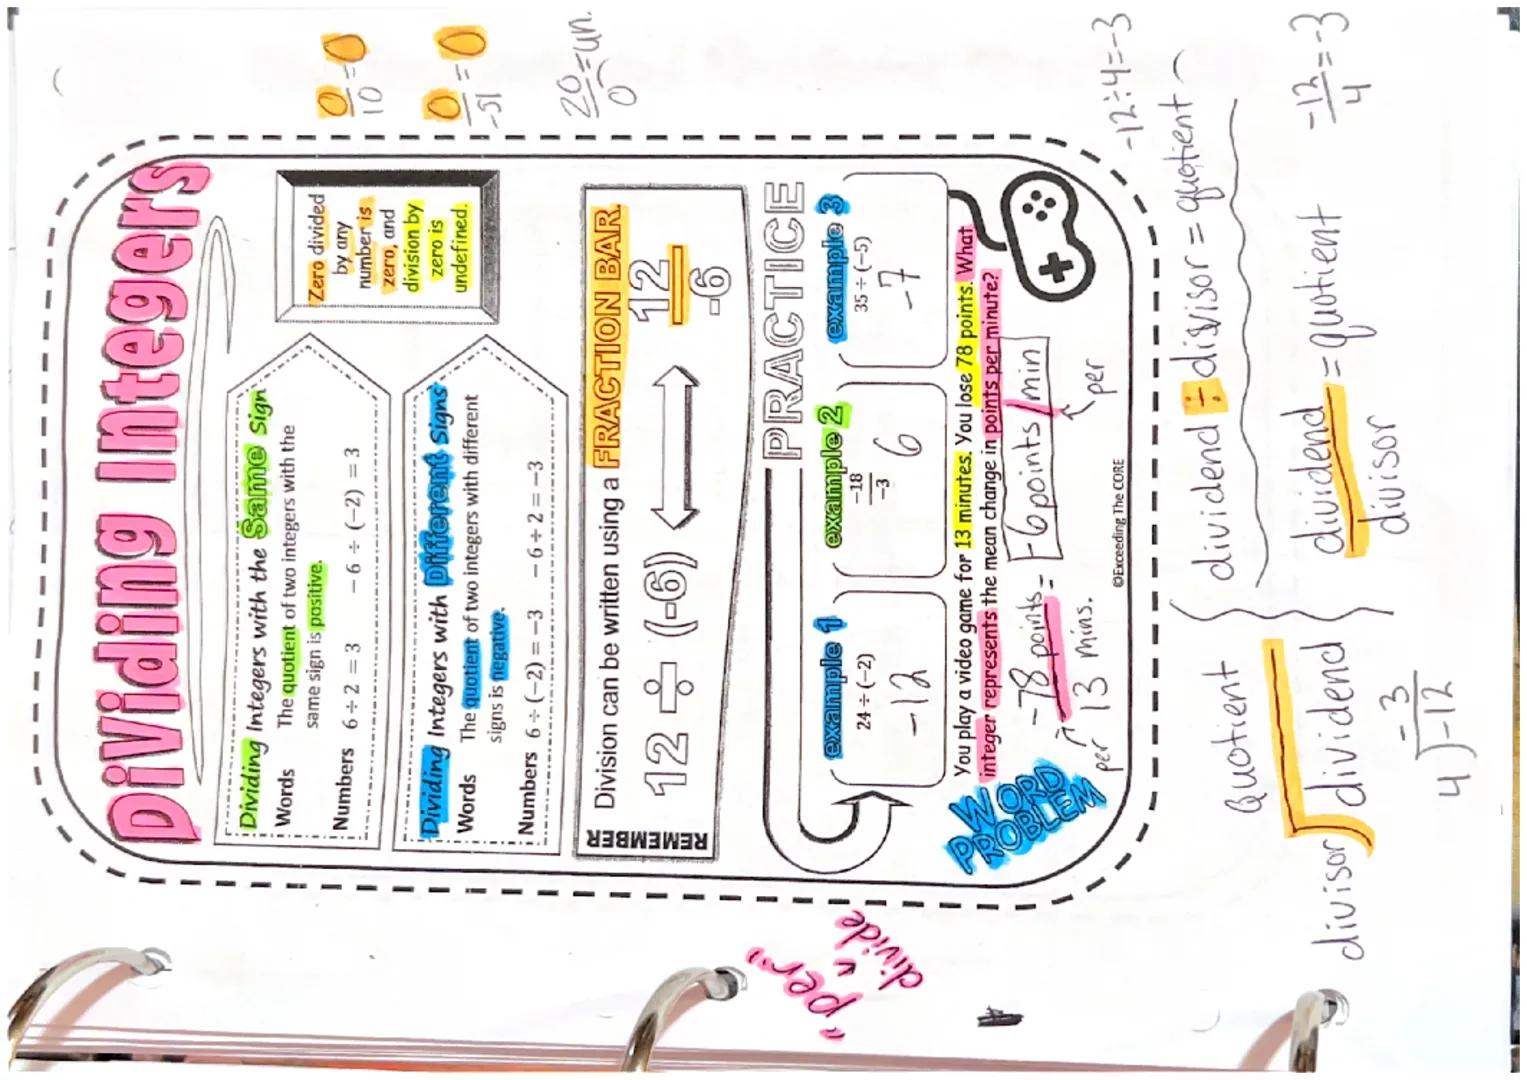 0/10 = 0
0/-51 = 0
20/0 = un.
Dividing Integers
Dividing Integers with the Same Sign
Words The quotient of two integers with the
same sign is positive.
Numbers 6 ÷ 2 = 3 - 6 ÷ (-2) = 3
Zero divided
by any
number is
zero, and
division by
zero is
undefined.
Dividing Integers with Different Signs
Words The quotient of two integers with different
signs is negative.
Numbers 6 ÷ (-2) = -3 - 6 ÷ 2 = -3
REMEMBER
Division can be written using a FRACTION BAR.
12 ÷ (-6)
12
-6
PRACTICE
example 1
24 ÷ (-2)
-12
example 2
-18
-3
6
example 3
35 ÷ (-5)
-7
"per"
divide
WORD
PROBLEM
You play a video game for 13 minutes. You lose 78 points. What
integer represents the mean change in points per minute?
-78 points = -6 points / min
per 13 mins.
per
©Exceeding The CORE
-12 ÷ 4 = -3
dividend ÷ divisor = quotient
Quotient
divisor dividend
dividend = quotient
divisor
-12 = -3
4
-3
4 -12